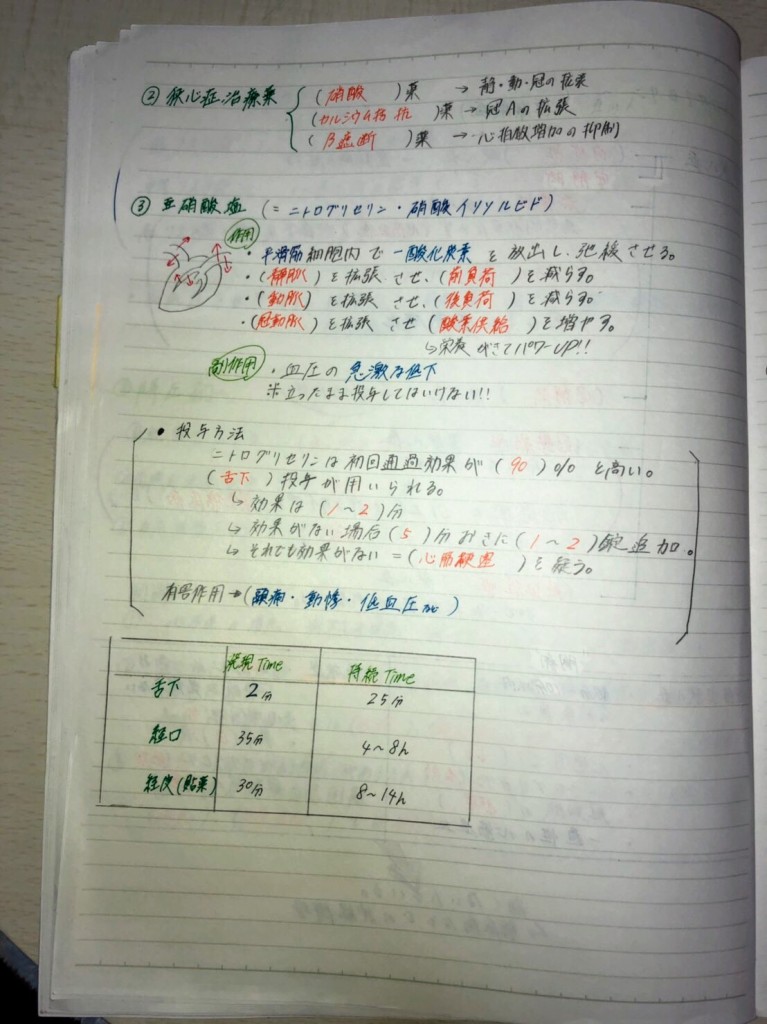 ② 狭心症治療薬
(硝酸)薬 → 静・動・冠の拡張
(カルシウム拮抗)薬 → 冠Aの拡張
(β遮断)薬 → 心拍数増加の抑制
③ 亜硝酸塩 (=ニトログリセリン・硝酸イソソルビド)
作用
・平滑筋細胞内で一酸化炭素を放出し、弛緩させる。
・(静脈)を拡張させ、(前負荷)を減らす。
・(動脈)を拡張させ、(後負荷)を減らす。
・(冠動脈)を拡張させ(酸素供給)を増やす。
↳栄養がきてパワーUP!!
副作用 ・血圧の急激な低下
※立ったまま投与してはいけない!!
• 投与方法
ニトログリセリンは初回通過効果が(90)%と高い。
(舌下)投与が用いられる。
↳ 効果は(1~2)分
↳ 効果がない場合(5)分おきに(1~2)錠追加。
↳ それでも効果がない=(心筋梗塞)を疑う。
有害作用→(頭痛・動悸・低血圧 など)
発現Time 持続Time
舌下 2分 25分
経口 35分 4~8h
経皮(貼薬) 30分 8~14h